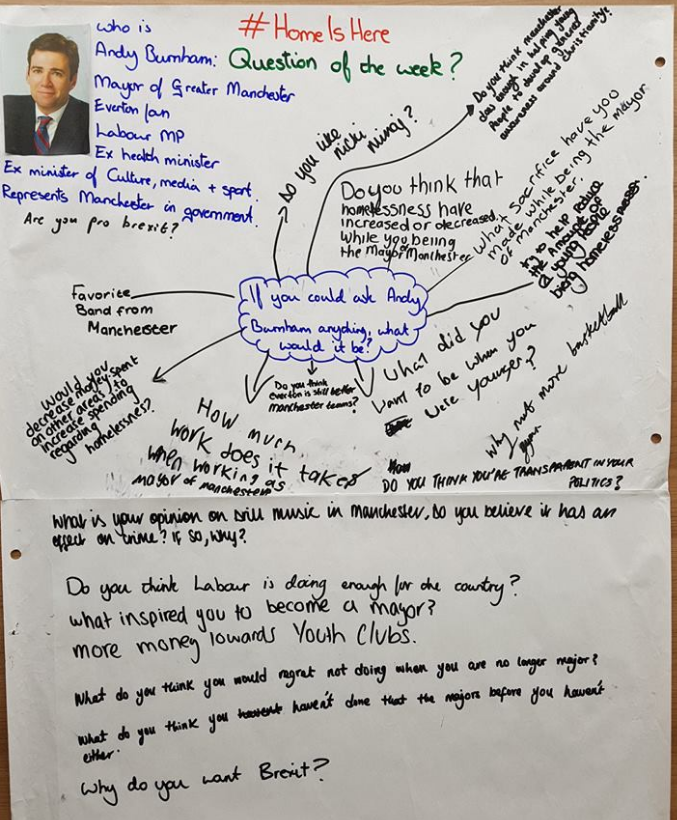 who is
Andy Burnham:
Mayor of Greater Manchester
Everton fan
Labour MP
Ex health minister
Ex minister of Culture, media + sport.
Represents Manchester in government.
Are you pro brexit?
# Home Is Here
Question of the week?
Do you think manchester
does enough in helping young
People to develop general
awareness around Christianity?
Do you like
nicki
minaj?
Do you think that
homelessness have
increased or decreased
while you being
the Mayor of Manchester
What sacrifice have you
made while being the mayor
of manchester.
try to help reduce
the Amount of
of young people
being homelessness
If you could ask Andy
Burnham anything, what
would it be?
Favorite
Band from
Manchester
Would you
decrease money spent
on other areas to
increase spending
regarding
homelessness?
How much
work does it takes
when working as
mayor of manchester
Do you think
everton is still better
manchester teams?
what did you
want to be when you
were younger?
why not more basketball
DO YOU THINK YOU'RE TRANSPARENT IN YOUR
POLITICS?
What is your opinion on drill music in Manchester, do you believe it has an
effect on crime? if so, why?
Do you think Labour is doing enough for the country?
what inspired you to become a mayor?
more money towards Youth Clubs.
What do you think you would regrat not doing when you are no longer major?
What do you think you haven't done that the majors before you haven't
either.
Why do you want Brexit?